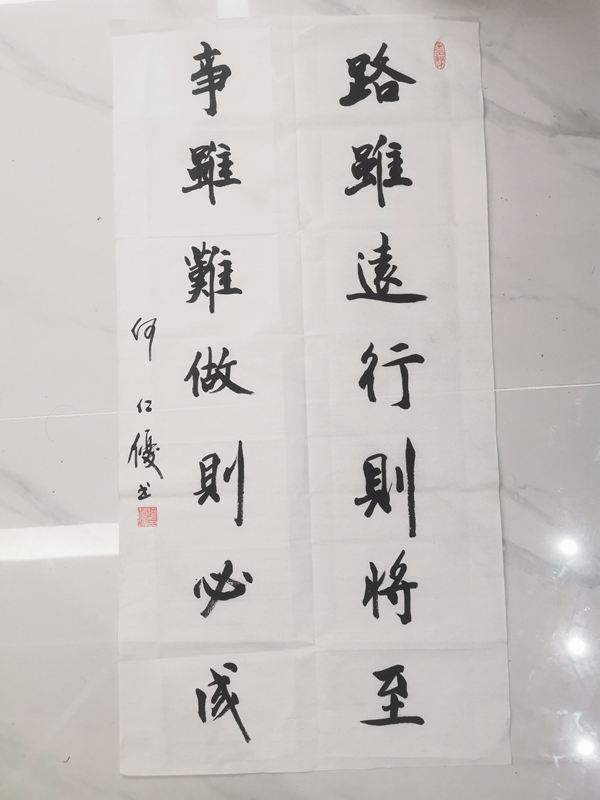 路雖遠行則將至
事雖難做則必成
何仁優书